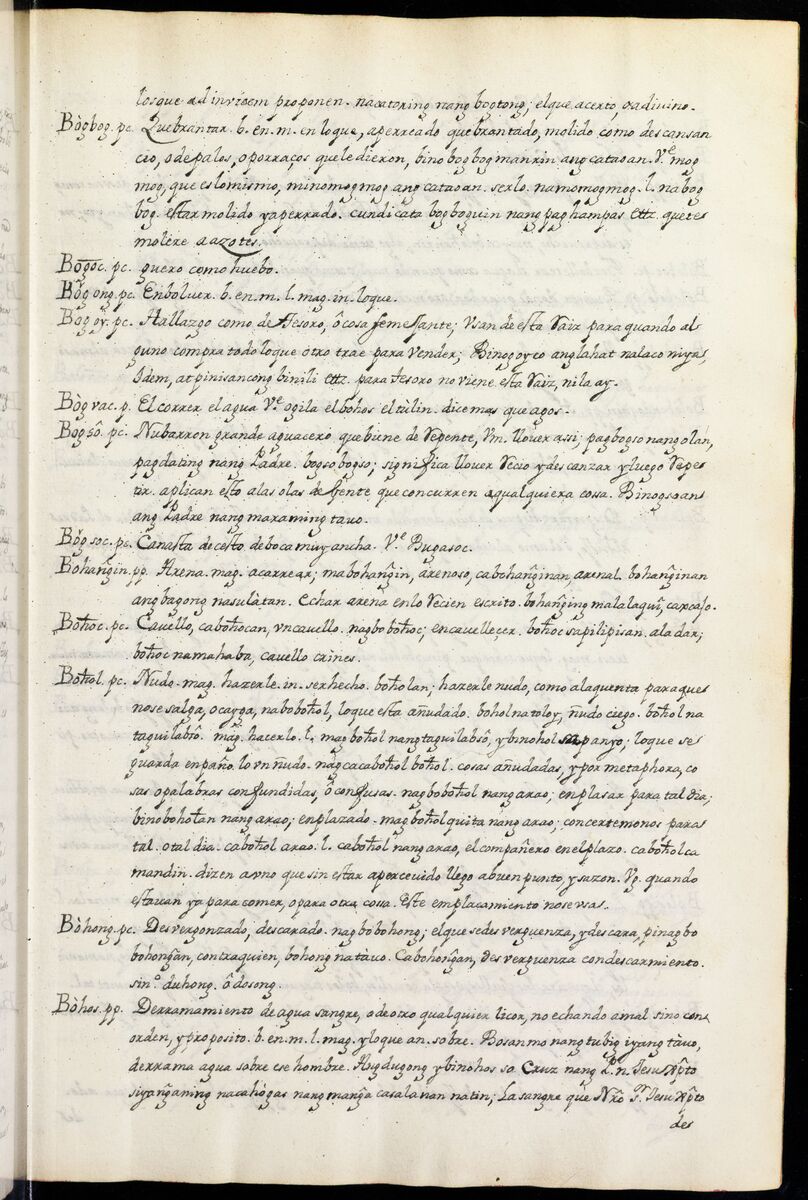 losque ad invicem proponen. nacatoring nang bogtong; elque acerto, o adivino.
Bògbog. pc. Quebrantar. b. en. m. en loque, aperreado quebrantado, molido como de scansan
cio, o de palos, o porraços quele dieron, bino bog bog man rin ang catao an. Vᵉ. mog
mog, que es lo mismo, minomog mog ang catao an. serlo. na mo mog mog. l. na bog
bog. estar molido y aperrado. cundi cata bog boguin nang pag hampas ettz. que te
moliere a azotes.
Bogoc. pc. guero como huebo.
Bog̃ ong. pc. Enboluer. b. en. m. l. mag. in. loque.
Bogoy. pc. Hallazgo como de tesoro, ô cosa semejante; Vsan de esta raiz para quando al
guno compra todo loque otro trae para vender; Binogoy co ang lahat nalaco niya,
Idem, at pinisan cong binili ettz. para tesoro no viene esta raiz, nila ay.
Bòg vac. p. El correr el agua Vᵉ. ogila el bohos el tùlin. dice mas que agos.
Bog sô. pc. Nubarron grande aguacero que biene de repente, Vm. llouer assi; pag bogso nang olán,
pag dating nang Padre. bogso bogso; significa llouer recio y descanzar y luego repe
tir. aplican esto alas olas de gente que concurren a qualquiera cosa. Binogsoan
ang Padre nang maraming tavo.
Bog̃ soc. pc. Canasta de cesto de boca muy ancha. Vᵉ. Bugasoc.
Bohang̃in. pp. Arena. mag. acarrear; mabohang̃in, arenoso, cabohang̃inan, arenal. bohang̃inan
ang bagong nasulàtan. Echar arena enlo recien escrito. bohang̃ing malalaquî, cascajo.
Bohoc. pc. Cavello, cabohocan, vn cavello. nagbobohoc; encavelleçer. bohoc sapilipisan. aladar;
bohoc na mahaba, cavello crines.
Bohol. pc. Nudo. mag. hazerle. in. ser hecho. boholan; hazerle nudo, como ala quenta para que
nose salga, o cayga, nabobohol, loque esta añudado. bohol natoloy, ñudo ciego. bohol na
taguilabsô. mag. hacerlo. l. mag bohol nang taguilabsô, y binohol sa panyo; loque se
guarda en paño. lo vn nudo. nagcacabohol bohol. cosas añudadas, y por metaphora, co
sas o palabras confundidas, ô confusas. nag bobohol nang arao; enplasar para tal dia;
binoholan nang arao; enplazado. mag bohol quita nang arao; concertemonos para
tal. o tal dia. cabohol arao. l. cabohol nang arao, el compañero en el plazo. cabohol ca
mandin. dizen a vno que sin estar apercevido llego a buen punto, y sazon. Vg. quando
estavan ya para comer, o para otra cosa. Este emplaçamiento nose vsa.
Bòhong. pc. Desvergonzado, descarado. nag bobohong; el que se desverguenza, y descara, pinagbo
bohong̃an, contra quien, bohong na tàvo. Cabohong̃an, desverguenza con descarmiento.
sinᵒ. duhong. ô dosong.
Bòhos. pp. Derramamiento de agua sangre, o de otro qualquier licor, no echando a mal sino con
orden, y proposito. b. en. m. l. mag. y loque an. sobre. Bosan mo nang tubig iyang tàvo,
derrama agua sobre ese hombre. Ang dugong y binohos sa Cruz nang P. n. Jesu Xp̃to
siyang̃aning nacahógas nang mang̃a casalanan natin; La sangre que Nr̃o Sʳ. Jesu Xp̃to
des